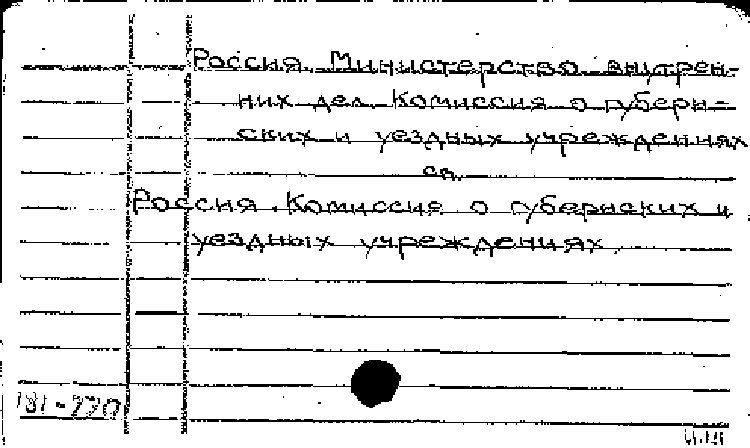 Россия. Министерство внутрен-
них дел. Комиссия о губерн-
ских и уездных учреждениях
см.
Россия. Комиссия о губернских и
уездных учреждениях.
181-770